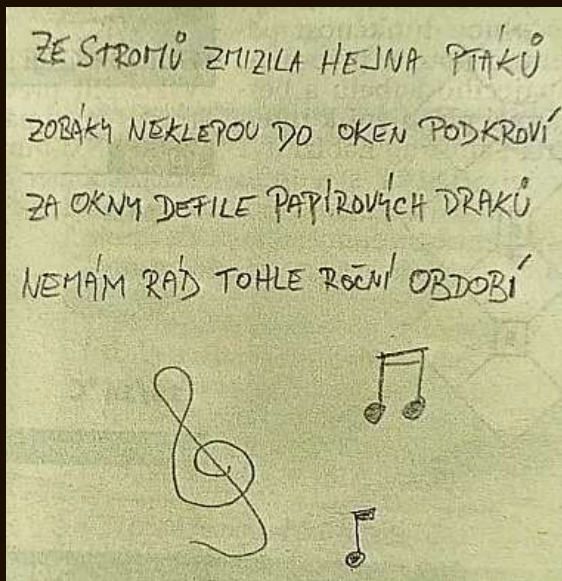 ZE STROMŮ ZMIZILA HEJNA PTÁKŮ
ZOBÁKY NEKLEPOU DO OKEN PODKROVÍ
ZA OKNY DEFILE PAPÍROVÝCH DRAKŮ
NEMÁM RÁD TOHLE ROČNÍ OBDOBÍ